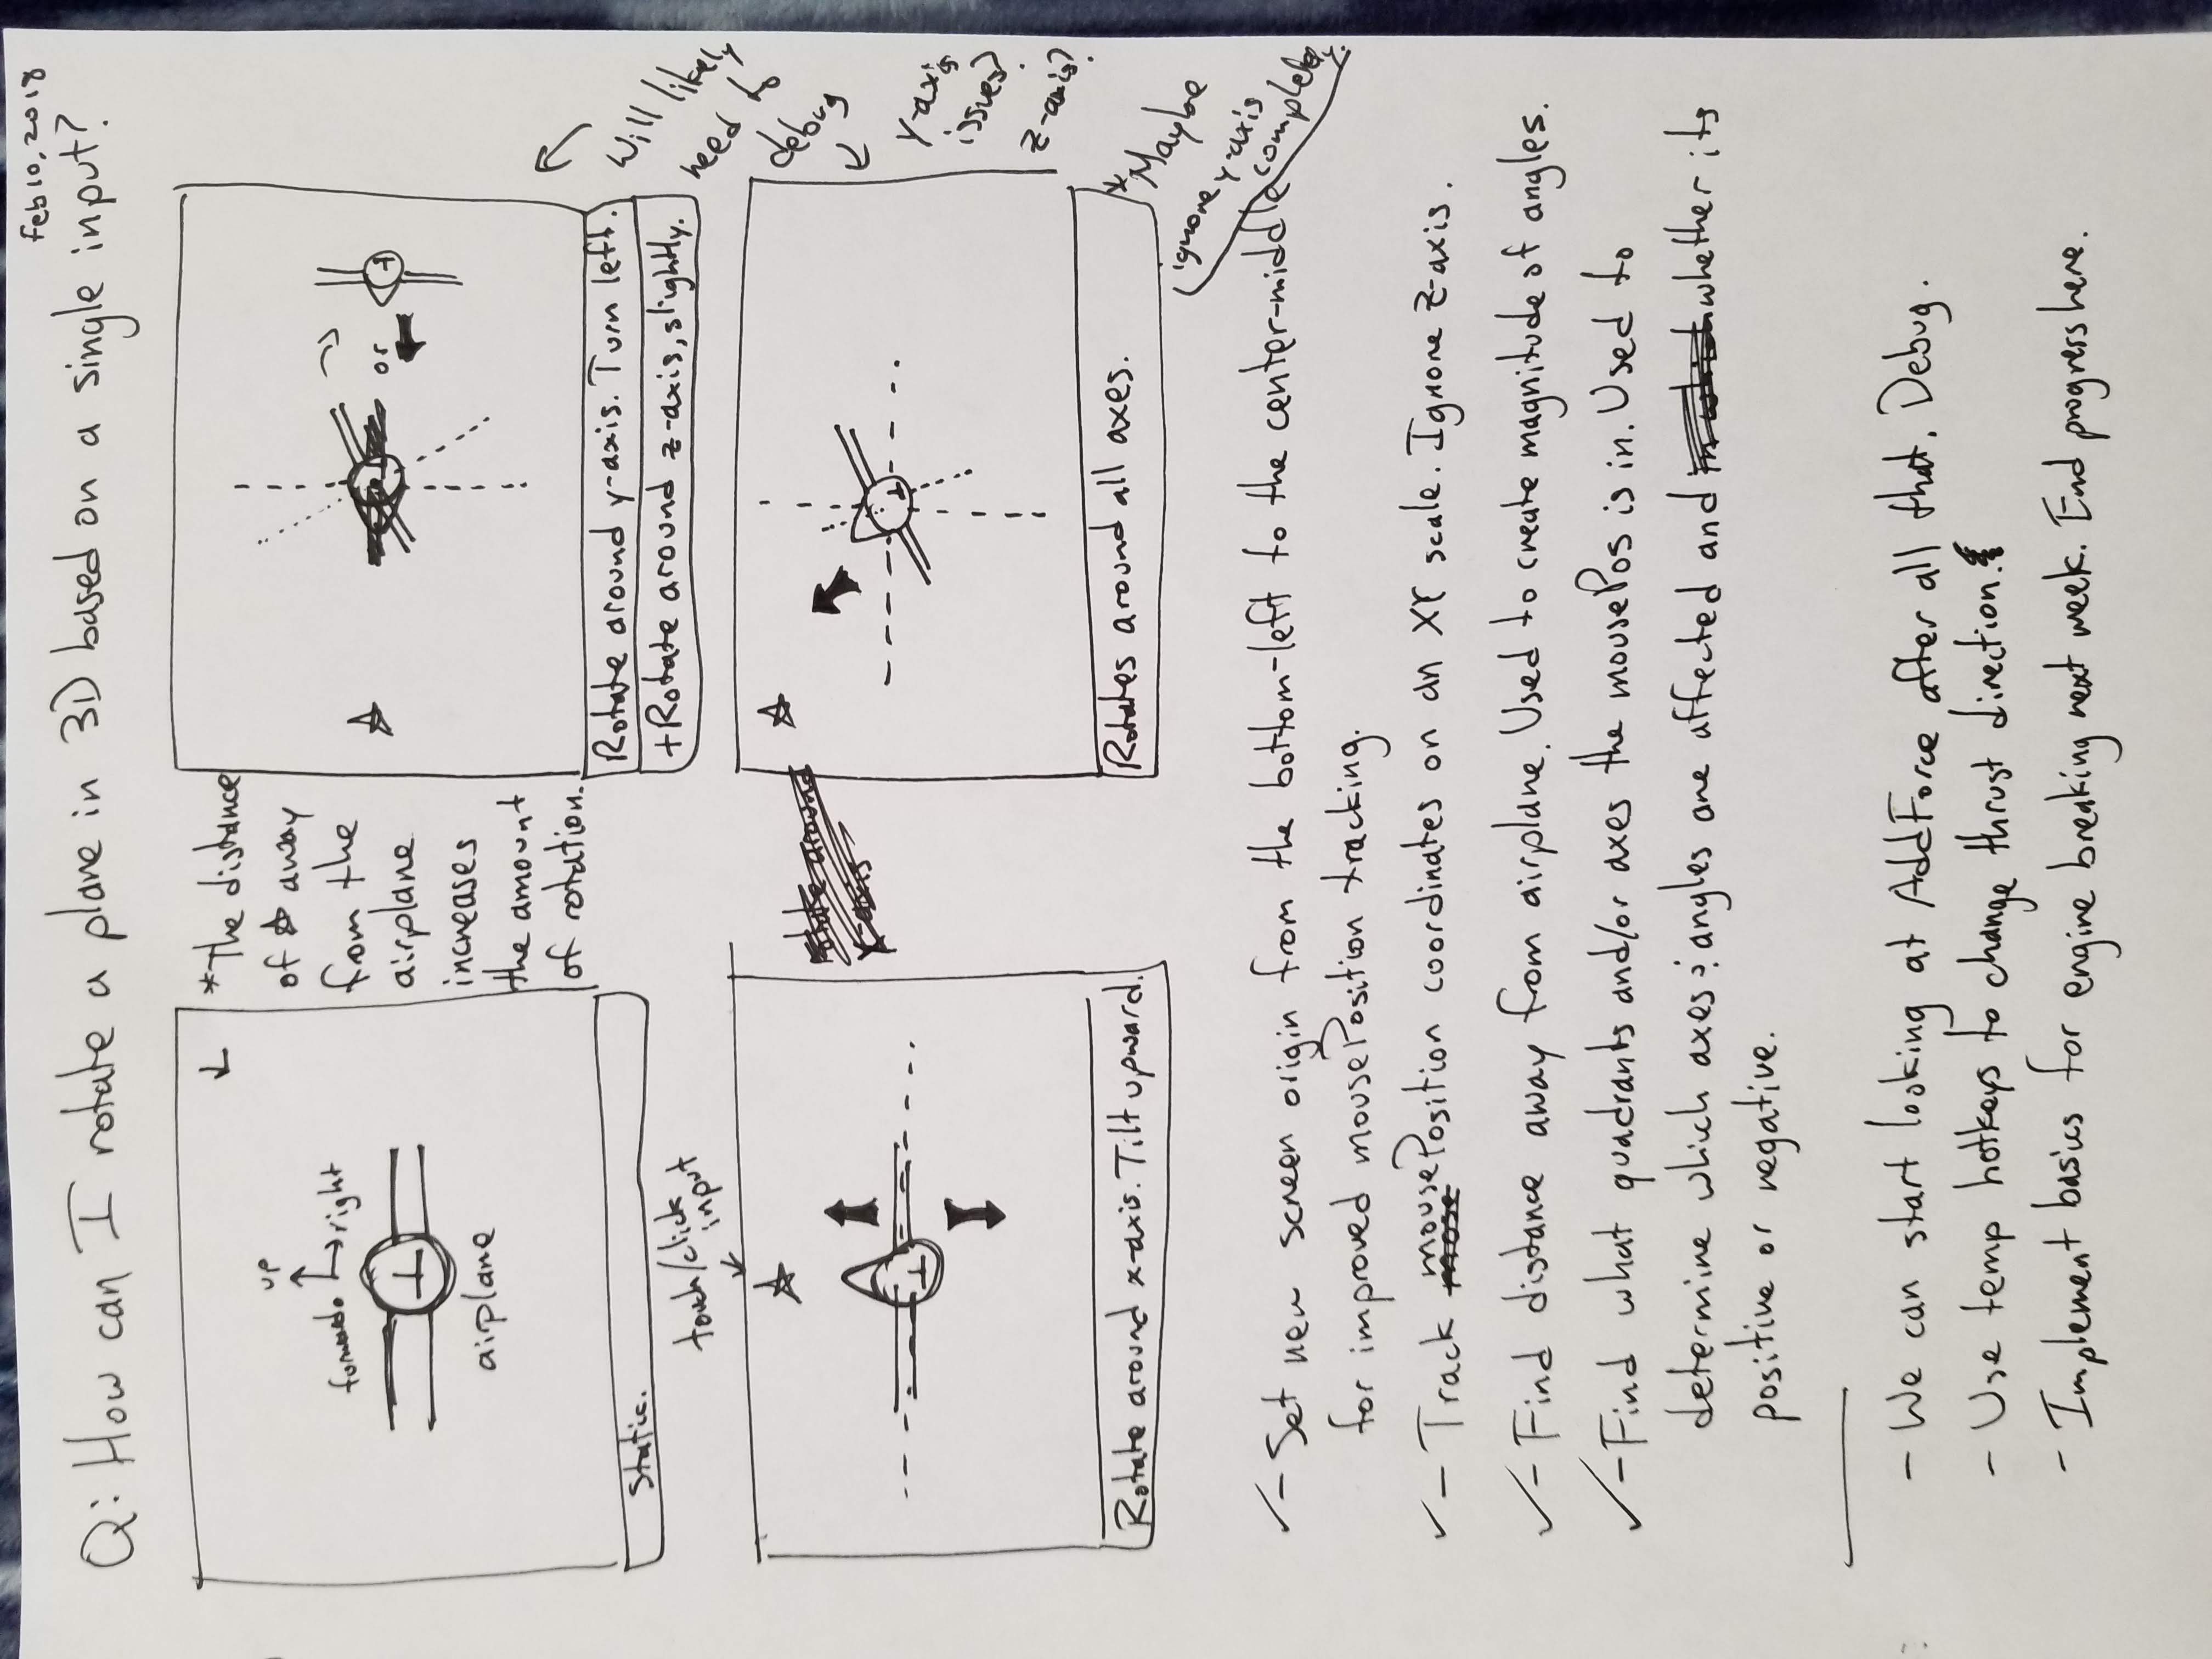 Feb 10, 2018
Q: How can I rotate a plane in 3D based on a single input?
up
forwards
right
airplane
Static.
*The distance
of ☆ away
from the
airplane
increases
the amount
of rotation.
or
Rotate around y-axis. Turn left.
+Rotate around z-axis, slightly.
touch/click
input
Rotate around x-axis. Tilt upward.
rotate around
Y-axis
Rotates around all axes.
Will likely
need to
debug
Y-axis
issues?
Z-axis?
*Maybe
ignore y-axis
completely.
✓ - Set new screen origin from the bottom-left to the center-middle
for improved mousePosition tracking.
✓ - Track mose mousePosition coordinates on an XY scale. Ignore Z-axis.
✓ - Find distance away from airplane. Used to create magnitude of angles.
✓ - Find what quadrants and/or axes the mousePos is in. Used to
determine which axes & angles are affected and in which whether its
positive or negative.
- We can start looking at AddForce after all that. Debug.
- Use temp hotkeys to change thrust direction.
- Implement basics for engine breaking next week. End progress here.